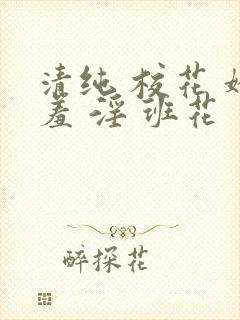 清纯校花好
羞淫班花
醉探花